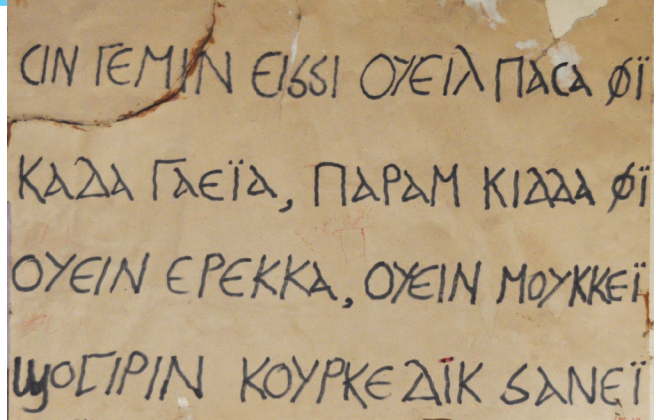 ⲥⲓⲛ ⲅⲉⲙⲓⲛ ⲉⲓⳝⳝⲓ ⲟⲩⲉⲓⲗ ⲡⲁⲥⲁ ⲫⲓ̈
ⲕⲁⲇⲁ ⲅⲁⲉⲓ̈ⲁ, ⲡⲁⲣⲁⲙ ⲕⲓⲇⲇⲁ ⲫⲓ̈
ⲟⲩⲉⲓⲛ ⲉⲣⲉⲕⲕⲁ, ⲟⲩⲉⲓⲛ ⲙⲟⲩⲕⲕⲉⲓ̈
ϣⲟⳟⲓⲣⲓⲛ ⲕⲟⲩⲣⲕⲉ ⲇⲓ̈ⲕ ⳝⲁⲛⲉⲓ̈